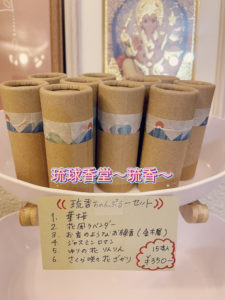 琉球香堂〜琉香〜
琉香ちゃんぷるーセット
1. 華桜
2. 花風ラベンダー
3. お香のようなお線香(金木犀)
4. ジャスミンロマン
5. ゆりの花りんりん
6. さくら咲き花ざかり
15本入
¥550-